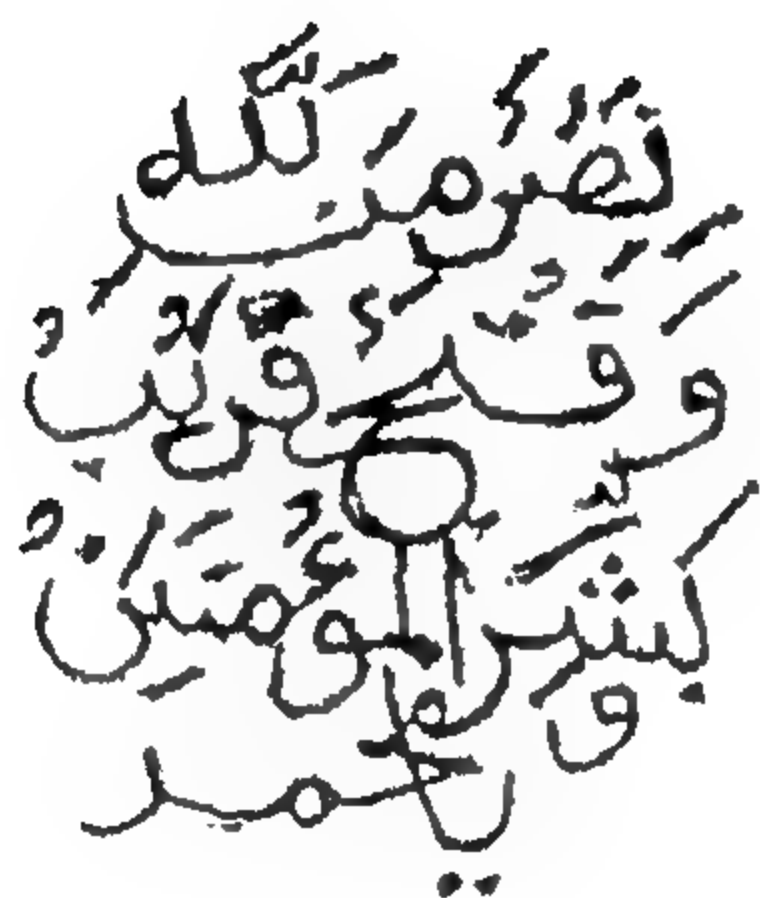 نَصْرٌ مِنَ اللّٰهِ
وَفَتْحٌ قَرِيبٌ
وَبَشِّرِ الْمُؤْمِنِينَ
يا محمد